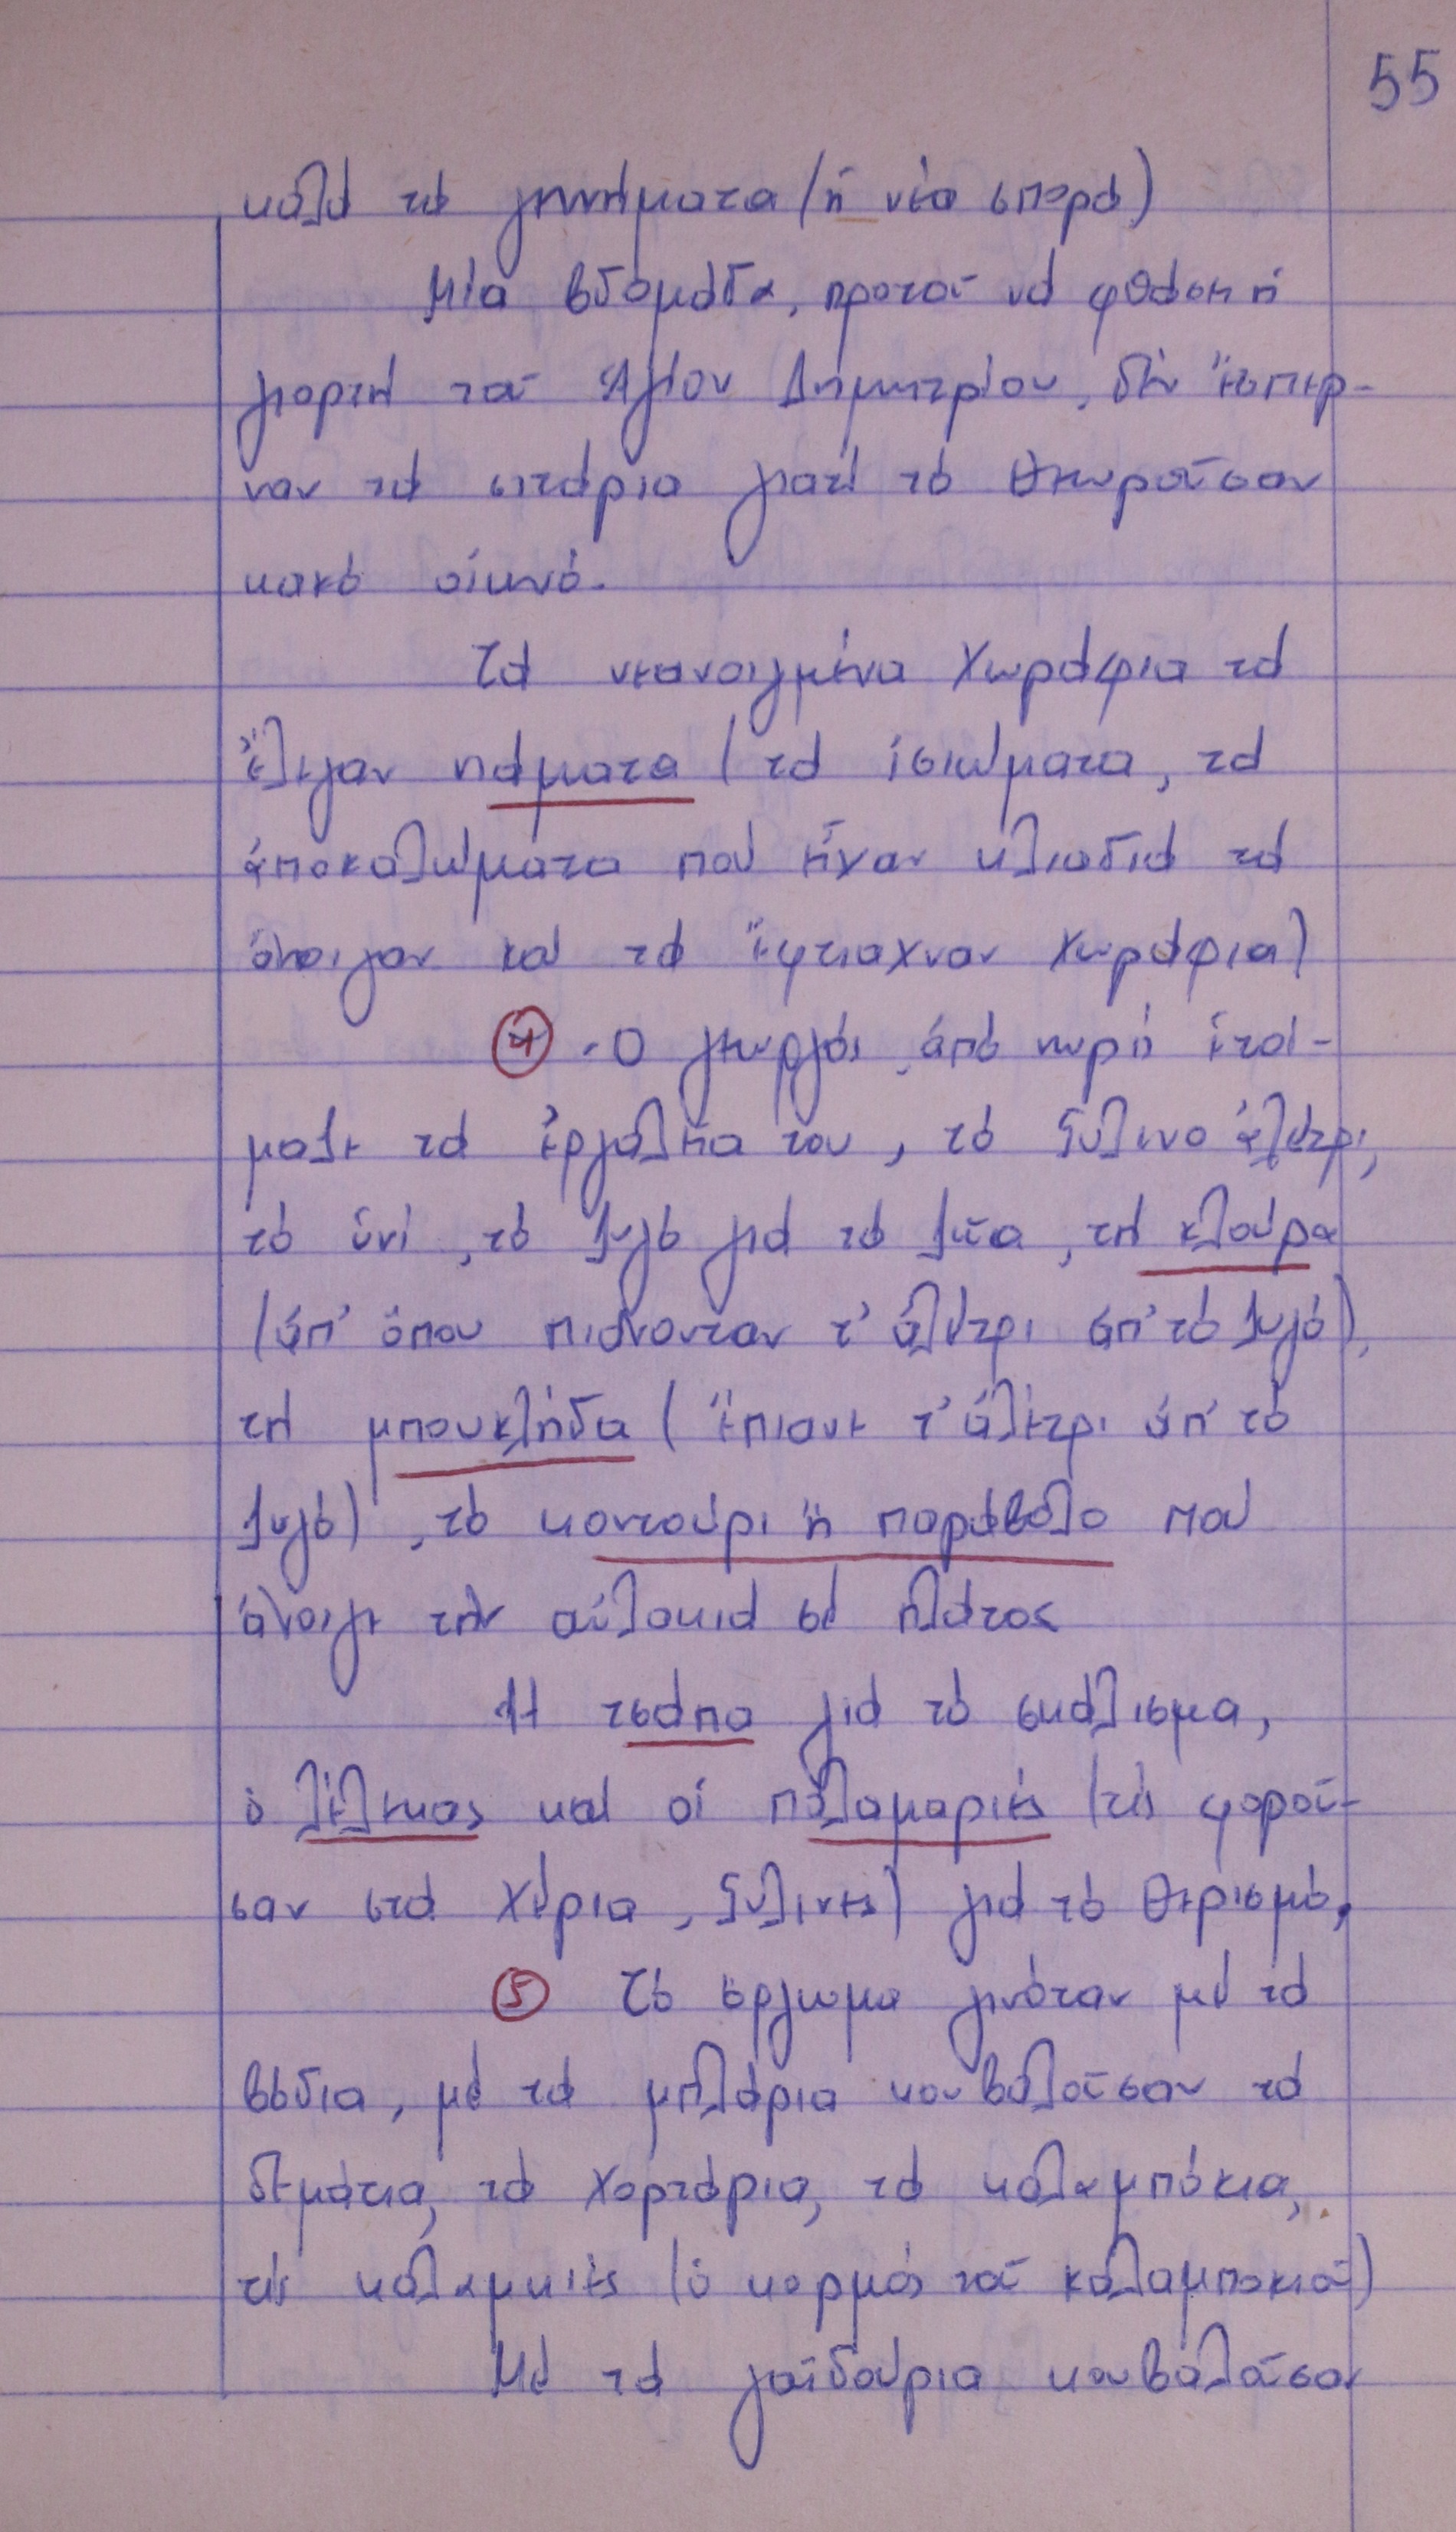 55
καλά τά γεννήματα (ἡ νέα σπορά)
Μία βδομάδα, προτοῦ νά φθάση ἡ
γιορτή τοῦ Ἁγίου Δημητρίου, δέν ἔσπερ-
ναν τά σιτάρια γιατί τό θεωροῦσαν
κακό οἰωνό.
Τά νεανοιγμένα χωράφια τά
ἔλεγαν πάματα (τά ἰσιώματα, τά
ἀποκαλώματα πού ἦγαν κλιαδιά τά
ἄνοιγαν καί τά ἔφτιαχναν χωράφια)
④ -Ὁ γεωργός, ἀπό νωρίς ἑτοί-
μαζε τά ἐργαλεῖα του, τό ξύλινο ἀλέτρι,
τό ὑνί, τό ζυγό γιά τά ζῶα, τή κλούρα
(ἀπ' ὅπου πιάνονταν τ' ἀλέτρι ἀπ' τό ζυγό),
τή μπουκλήδα (ἔπιανε τ' ἀλέτρι ἀπ' τό
ζυγό), τό κοντούρι ἤ παράβολο πού
ἄνοιγε τήν αὐλακιά σέ πλάτος
Ἡ τσάπα γιά τό σκάλισμα,
ὁ λέλεκας καί οἱ παλαμαριές (τίς φοροῦ-
σαν στά χέρια, ξύλινες) γιά τό θερισμό.
⑤ Τό ὄργωμα γινόταν μέ τά
βόδια, μέ τά μπλάρια κουβαλοῦσαν τά
δεμάτια, τά χορτάρια, τά καλαμπόκια,
τίς καλαμκιές (ὁ κορμός τοῦ καλαμποκιοῦ)
Μέ τά γαϊδούρια κουβαλοῦσαν